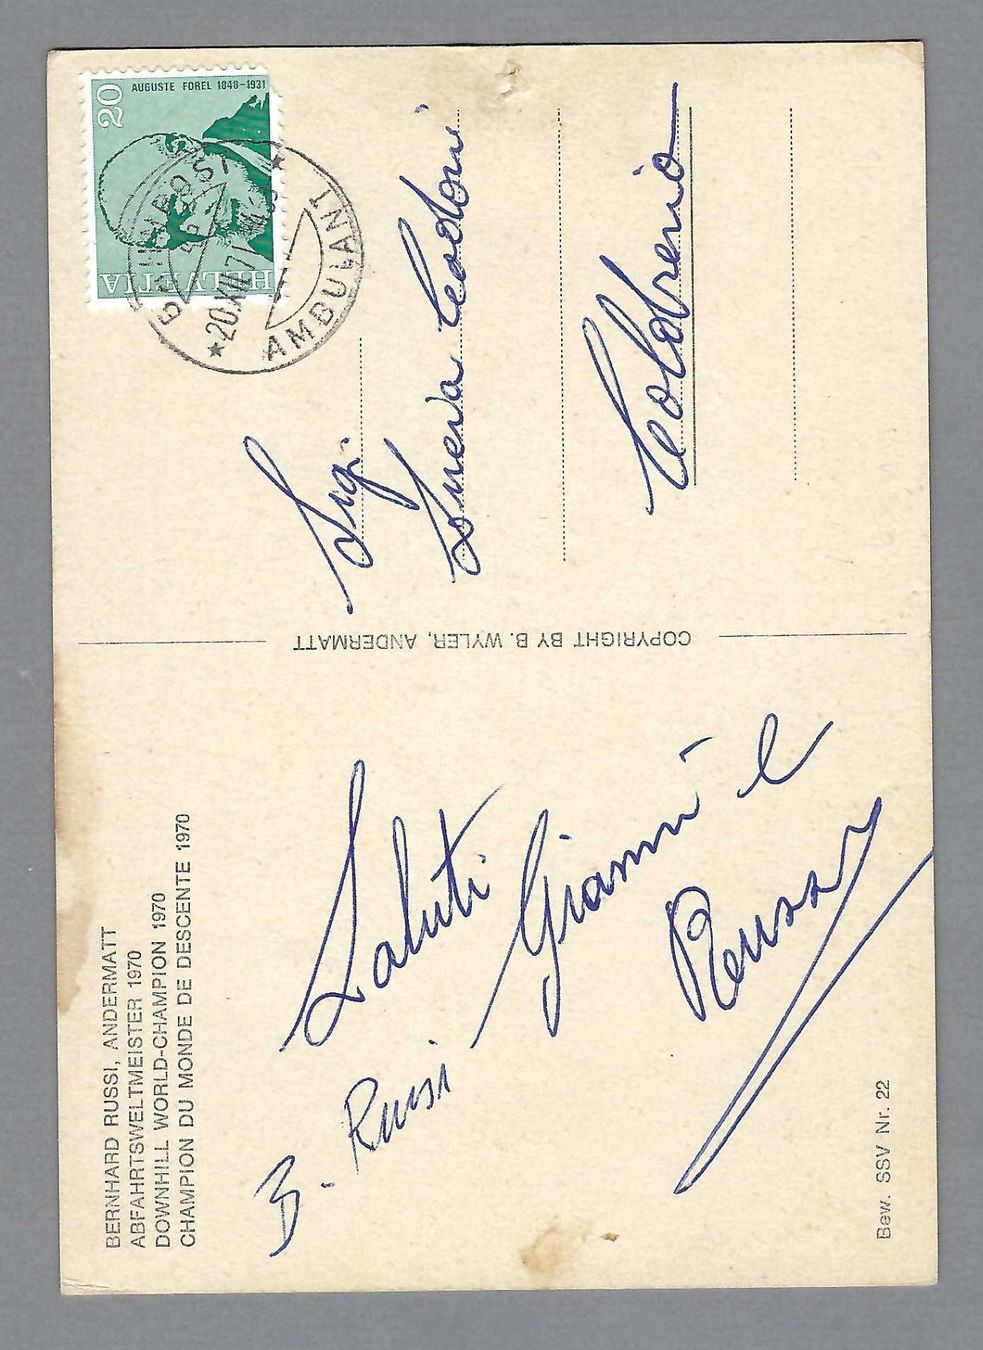 BERNHARD RUSSI, ANDERMATT
ABFAHRTSWELTMEISTER 1970
DOWNHILL WORLD-CHAMPION 1970
CHAMPION DU MONDE DE DESCENTE 1970
Saluti
B. Russi
Gianni e
Bew. SSV Nr. 22
COPYRIGHT BY B. WYLER, ANDERMATT
AUGUSTE FOREL 1848-1931
20
HELVETIA
BAHNPOST
20.XII.71
AMBULANT
Sigi.